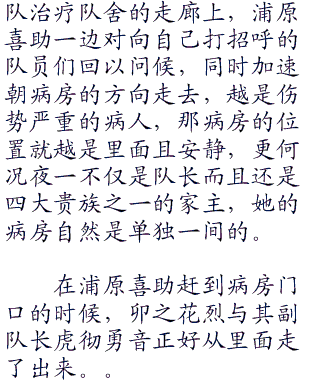 队治疗队舍的走廊上，浦原
喜助一边对向自己打招呼的
队员们回以问候，同时加速
朝病房的方向走去，越是伤
势严重的病人，那病房的位
置就越是里面且安静，更何
况夜一不仅是队长而且还是
四大贵族之一的家主，她的
病房自然是单独一间的。
在浦原喜助赶到病房门
口的时候，卯之花烈与其副
队长虎彻勇音正好从里面走
了出来。。